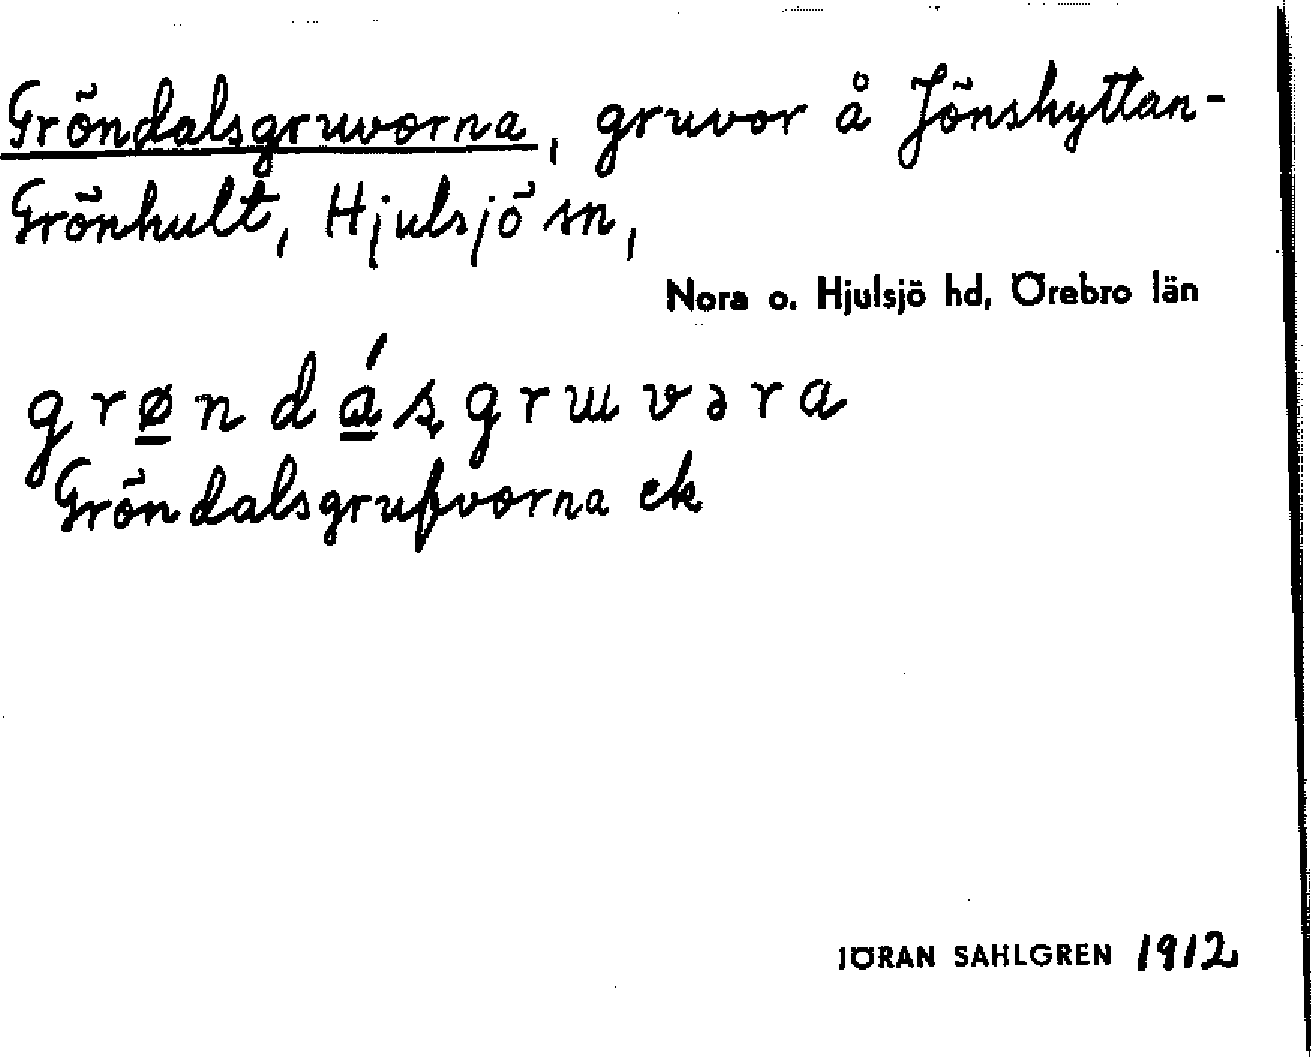 Gröndalsgruvorna, gruvor å Jönshyttan-
Grönhult, Hjulsjö sn,
Nora o. Hjulsjö hd, Örebro län
grø̲ndá̲sgruvəra
Gröndalsgrufvorna ek
JÖRAN SAHLGREN 1912